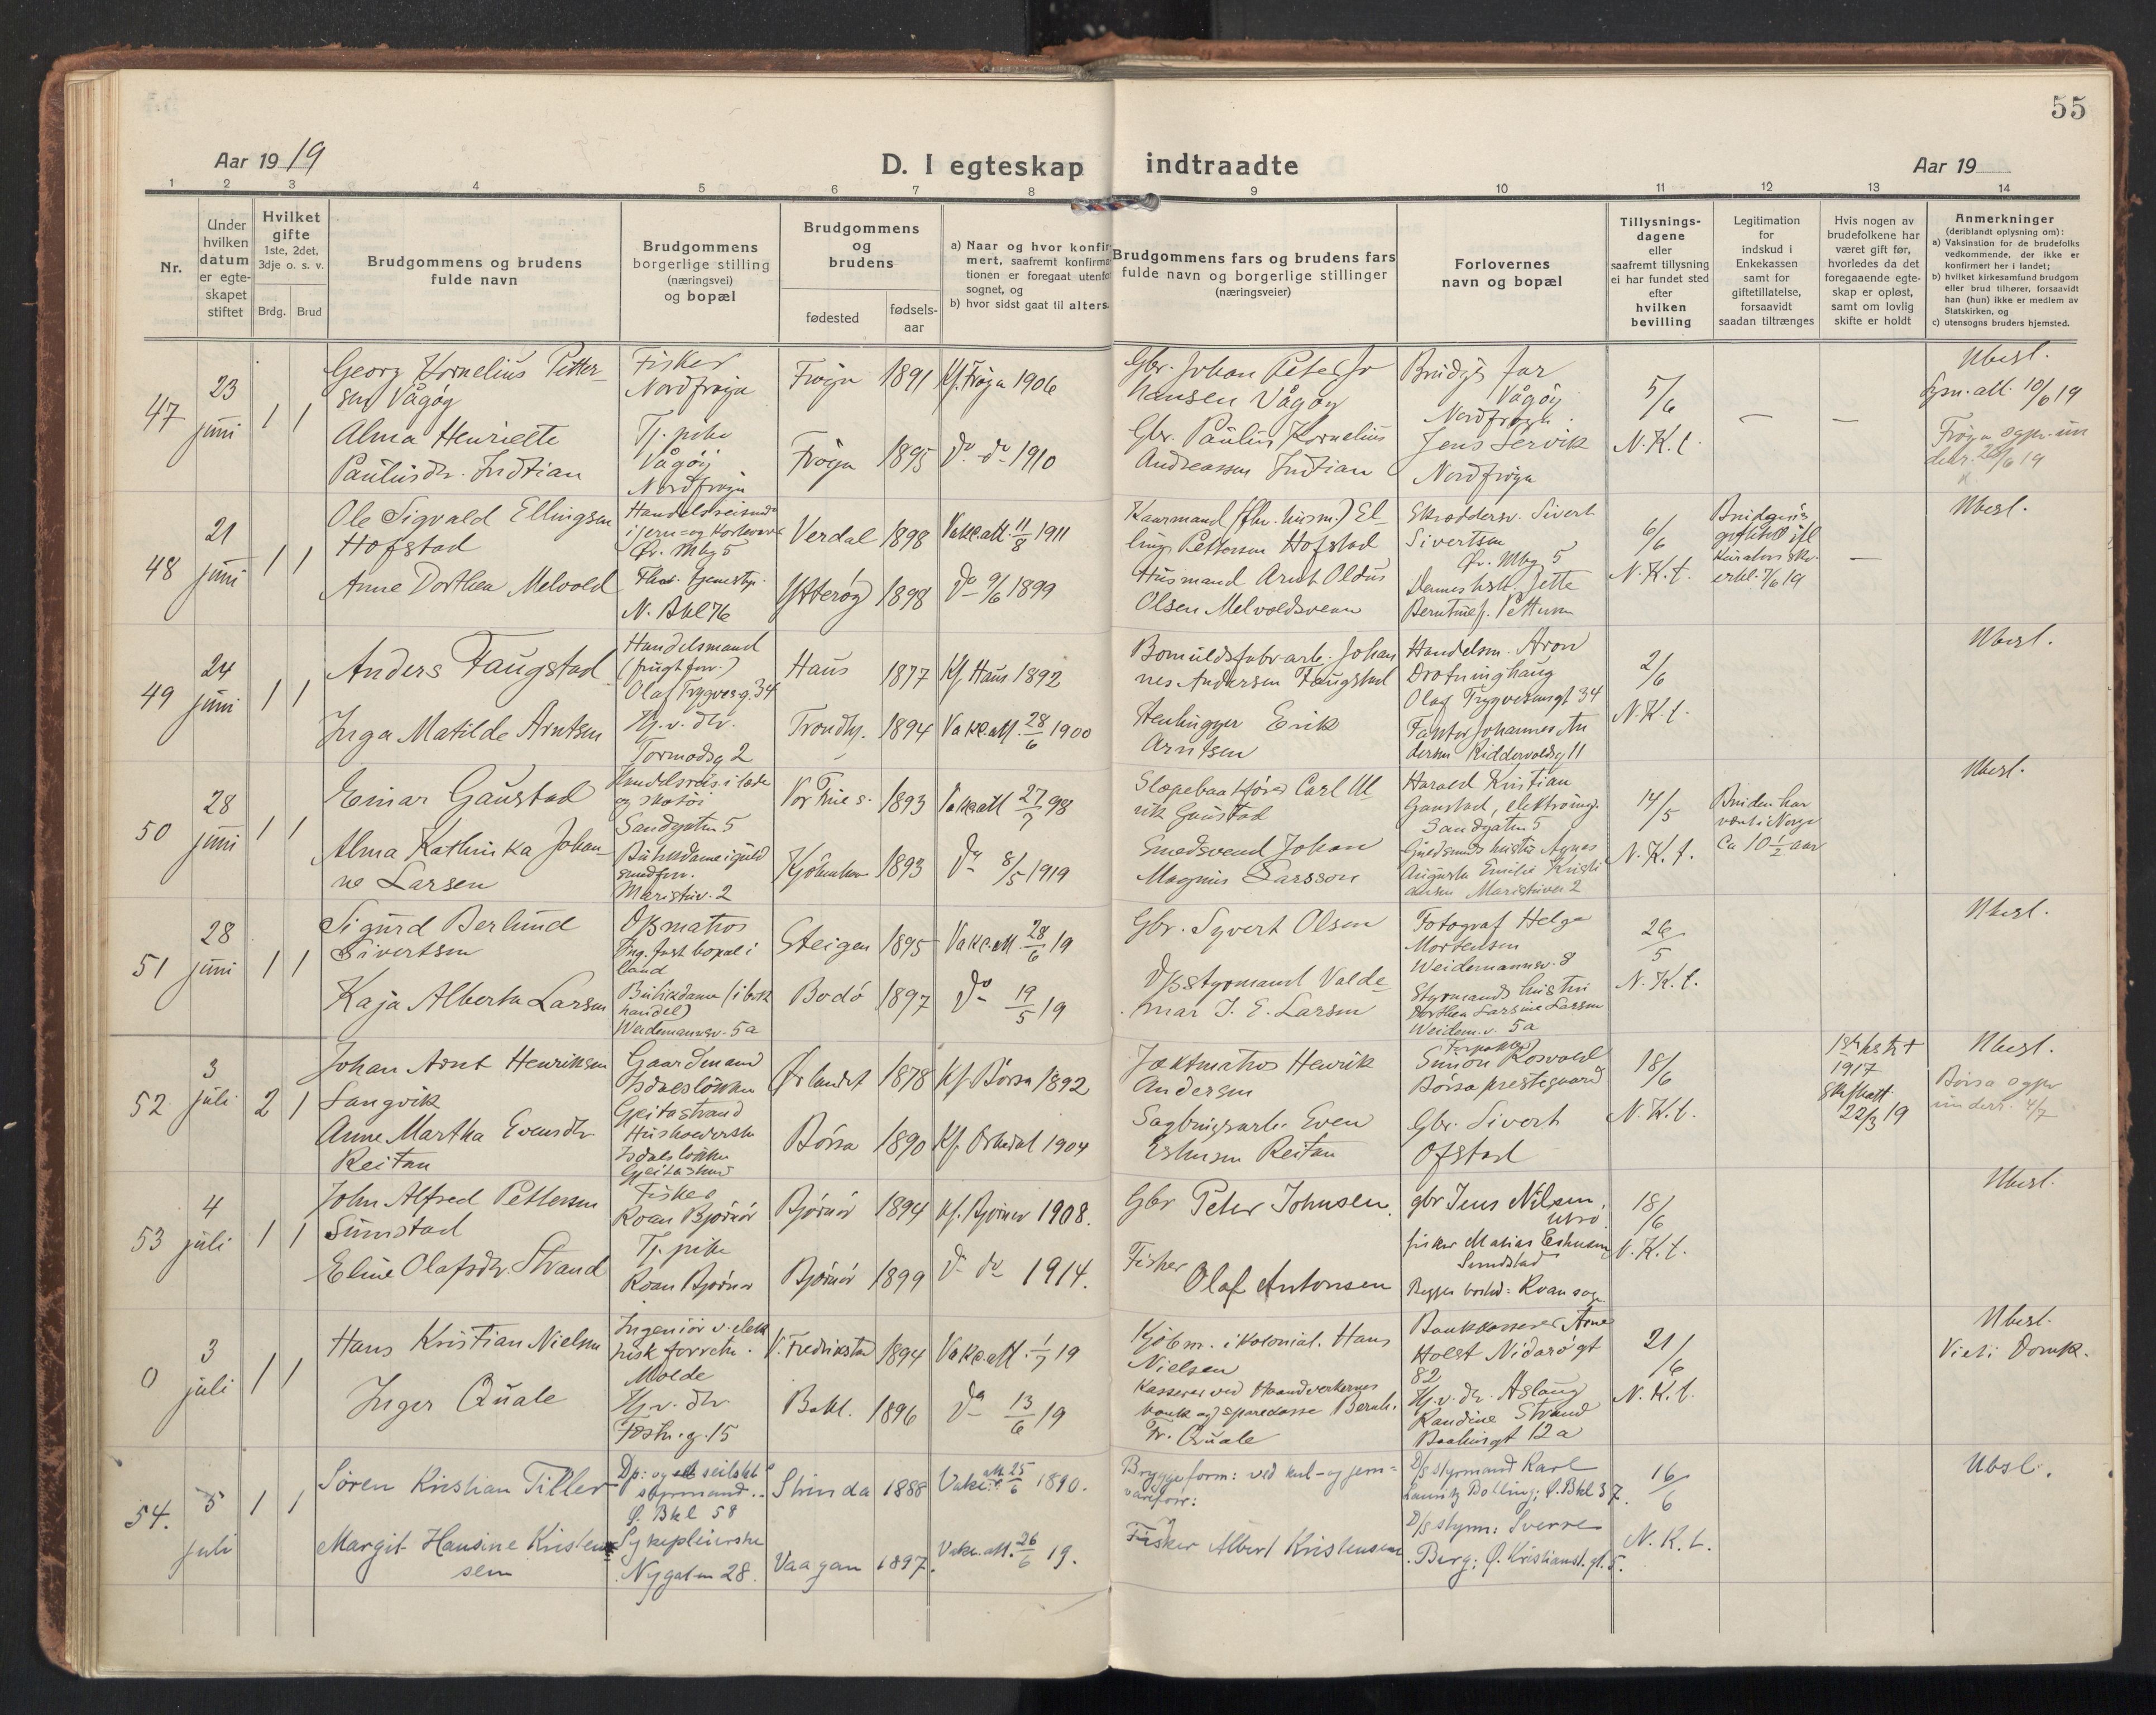 55
Aar 1919
D. I egteskap indtraadte
Aar 19
1 2 3 4 5 6 7 8 9 10 11 12 13 14
Nr.
Under hvilken datum er egteskapet stiftet
Hvilket gifte
1ste, 2det, 3dje o. s. v.
Brdg. Brud
Brudgommens og brudens fulde navn
Brudgommens borgerlige stilling (næringsvei) og bopæl
Brudgommens og brudens
fødested
fødselsaar
a) Naar og hvor konfirmert, saafremt konfirmationen er foregaat utenfor sognet, og
b) hvor sidst gaat til alters.
Brudgommens fars og brudens fars fulde navn og borgerlige stillinger (næringsveier)
Forlovernes navn og bopæl
Tillysningsdagene eller saafremt tillysning ei har fundet sted efter hvilken bevilling
Legitimation for indskud i Enkekassen samt for giftetillatelse, forsaavidt saadan tiltrænges
Hvis nogen av brudefolkene har været gift før, hvorledes da det foregaaende egteskap er opløst, samt om lovlig skifte er holdt
Anmerkninger (deriblandt oplysning om):
a) Vaksination for de brudefolks vedkommende, der ikke er konfirmert her i landet;
b) hvilket kirkesamfund brudgom eller brud tilhører, forsaavidt han (hun) ikke er medlem av Statskirken, og
c) utensogns bruders hjemsted.
47
23 juni
1 1
Georg Kornelius Pettersen Vågøy
Fisker
Nordfrøya
Frøya 1891 Kf. Frøya 1906
Gbr. Johan Peter Johansen Vågøy
Brudgs far
Vågøy
Nordfrøya
5/6
N.K.t.
— —
Ubesl.
10/6 19
Alma Henriette Paulusdr. Indtian
Tj. pike
Vågøy
Nordfrøya
Frøya 1895 do do 1910
Gbr. Paulus Kornelius Andreassen Indtian
Jens Servik
Nordfrøya
48
21 juni
1 1
Ole Sigvald Ellingsen Hofstad
Handelsreisende
i jern- og
Ø. Mbg 5
Verdal 1898 Vakc.att. 11/8 1911
Kaarmand
Ellings Pettersen Hofstad
Skræddersv. Sivert Sivertsen
Ø. Mbg 5
6/6
N.K.t.
7/6 19
—
Ubesl.
Anne Dorthea Melvold
N. Bkl 76
Ytterøy 1898 do 9/6 1899
Husmand Arnt Oldus Olsen Melvoldsveen
Jette Pettersen
49
24 juni
1 1
Anders Faugstad
Handelsmand
(frugtforr.)
Olaf Trygvesg. 34
Haus 1877 Kf. Haus 1892
Bomuldsfabrarb. Johannes Andersen Faugstad
Handelsm. Aron Drotninghaug
Olaf Trygvesønsgt 34
2/6
N.K.t.
Ubesl.
Inga Matilde Arntsen
Hj.v. dtr.
Tormodsg 2
Trondhj. 1894 Vakc.att. 28/6 1900
Stenhugger Erik Arntsen
Johannes Andersen Riddervoldsg 11
50
28 juni
1 1
Einar Gaustad
Handelsreis. i læder
og skotøi
Sandgaten 5
Vor Frue s. 1893 Vakc.att 27/7 98
Slæpebaatfører Carl Ulrik Gaustad
Harald Kristian Gaustad, elektroing.
Sandgaten 5
14/5
N.K.t.
Bruden har
været i Norge
Ca 10 1/2 aar
Ubesl.
Alma Kathinka Johanne Larsen
Butikdame i guldsmedforr.
Maristuv. 2
Kjøbenhavn 1893 do 8/5 1919
Smedsvend Johan Magnus Larsson
Guldsmeds hustru Agnes Augusta Emilie Kristiansen Maristuvei 2
51
28 juni
1 1
Sigurd Berlund Sivertsen
D/Smatros
Ing. fast bopæl i land
Steigen 1895 Vakc.att. 28/6 19
Gbr. Syvert Olsen
Fotograf Helge Mortensen
Weidemannsv. 8
26/5
N.K.t.
Ubesl.
Kaja Alberta Larsen
Butikdame (i bokhandel)
Weidemannsv. 5a
Bodø 1897 do 19/5 19
D/Sstyrmand Valdemar J. E. Larsen
Styrmands hustru Dorthea Larsine Larsen
Weidem.v. 5a
52
3 juli
2 1
Johan Arnt Henriksen Langvik
Gaardmand
Isdalsløkken
Geitastrand
Ørlandet 1878 Kf. Børsa 1892
Jaktmatros Henrik Andersen
Simon Rosvold
Børsa prestegaard
18/6
N.K.t.
1917
22/3 19
Ubesl.
Børsa
4/7
Anne Martha Evensdtr. Reitan
Isdalsløkken
Børsa 1890 Kf. Orkedal 1904
Sagbruksarb. Even Estensen Reitan
Gbr. Sivert Ofstad
53
4 juli
1 1
John Alfred Pettersen Sumstad
Fisker
Roan Bjørnør
Bjørnør 1894 Kf. Bjørnør 1908.
Gbr Peter Johnsen.
gbr Jens Nilsen
18/6
N.K.t.
Ubesl.
Eline Olafsdtr. Strand
Tj. pike
Roan Bjørnør
Bjørnør 1899 do do 1914.
Fisker Olaf Antonsen
fisker Matias Estensen Sumstad
Begges bosted: Roan sogn
0
3 juli
1 1
Hans Kristian Nielsen
Ingeniør v. elektrisk forretn.
Molde
V. Fredrikstad 1894 Vakc.att. 1/7 19
Kjøbm. i kolonial. Hans Nielsen
Bankkasserer Arne Holst Nidarøgt 82
21/6
N.K.t.
Ubesl.
Viet i Domk.
Inger Quale
Hj.v. dtr.
15
Bakl. 1896 do 13/6 19
Kasserer ved Haandverkernes bank og sparekasse Bernh. Fr. Quale
Hj.v. dtr. Aslaug Randine Strand
12 a
54.
5 juli
1 1
Søren Kristian Tiller
styrmand.
Ø. Bkl 58
Strinda 1888 Vakc. att 25/6 1890.
Bryggeform: vid kul- og jernvareforr:
D/S styrmand Karl Lauritz Bolling; Ø. Bkl 37.
16/6
N.K.t.
Ubsl.
Margit Hansine Kristensen
Sykepleierske
Nygaten 28.
Vaagan 1897. Vakc. att. 26/6 19.
Fisker Albert Kristensen
D/S styrm: Sverre Berg; Ø. Kristianst. gt. 5.